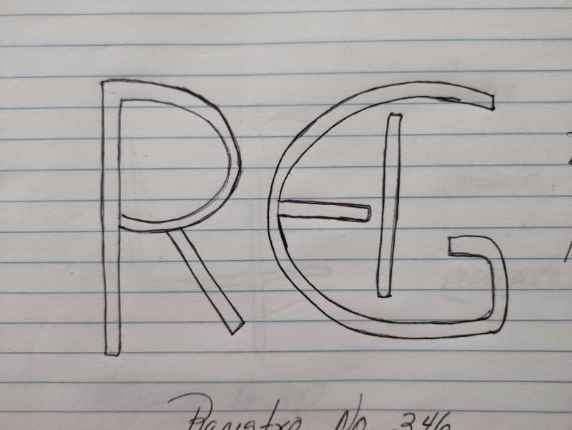 REIG
Registro No. 346